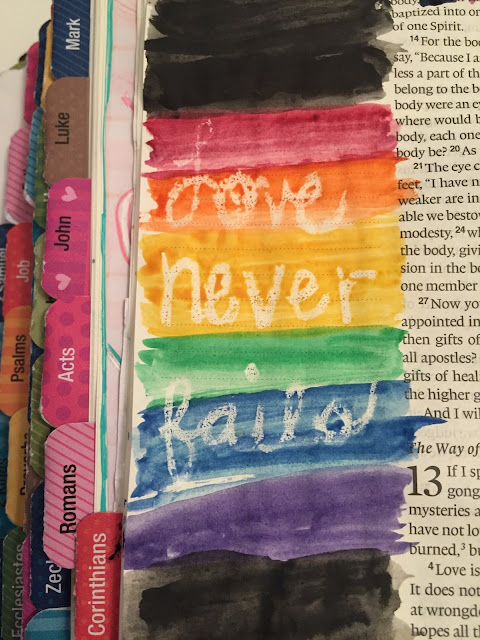 Mark
Luke
John
Acts
Romans
Corinthians
Job
Psalms
Ecclesiastes
Zec
Love
never
fails
baptized into on
of one Spirit.
14 For the bod
say, “Because I a
less a part of th
belong to the b
body were an ey
where would b
body, each one
body be? 20 As
21 The eye c
feet, “I have n
weaker are in
able we bestov
modesty, 24 wh
the body, givi
sion in the bo
one member
27 Now you
appointed in
then gifts of
all apostles?
gifts of heal
the higher g
And I wil
The Way of
13 If I sp
gong
mysteries a
have not lo
burned,3 bu
4 Love is
It does not
at wrongdo
hopes all th